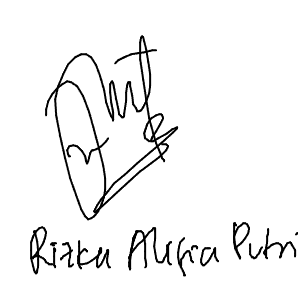 Rizka Alegra Putri